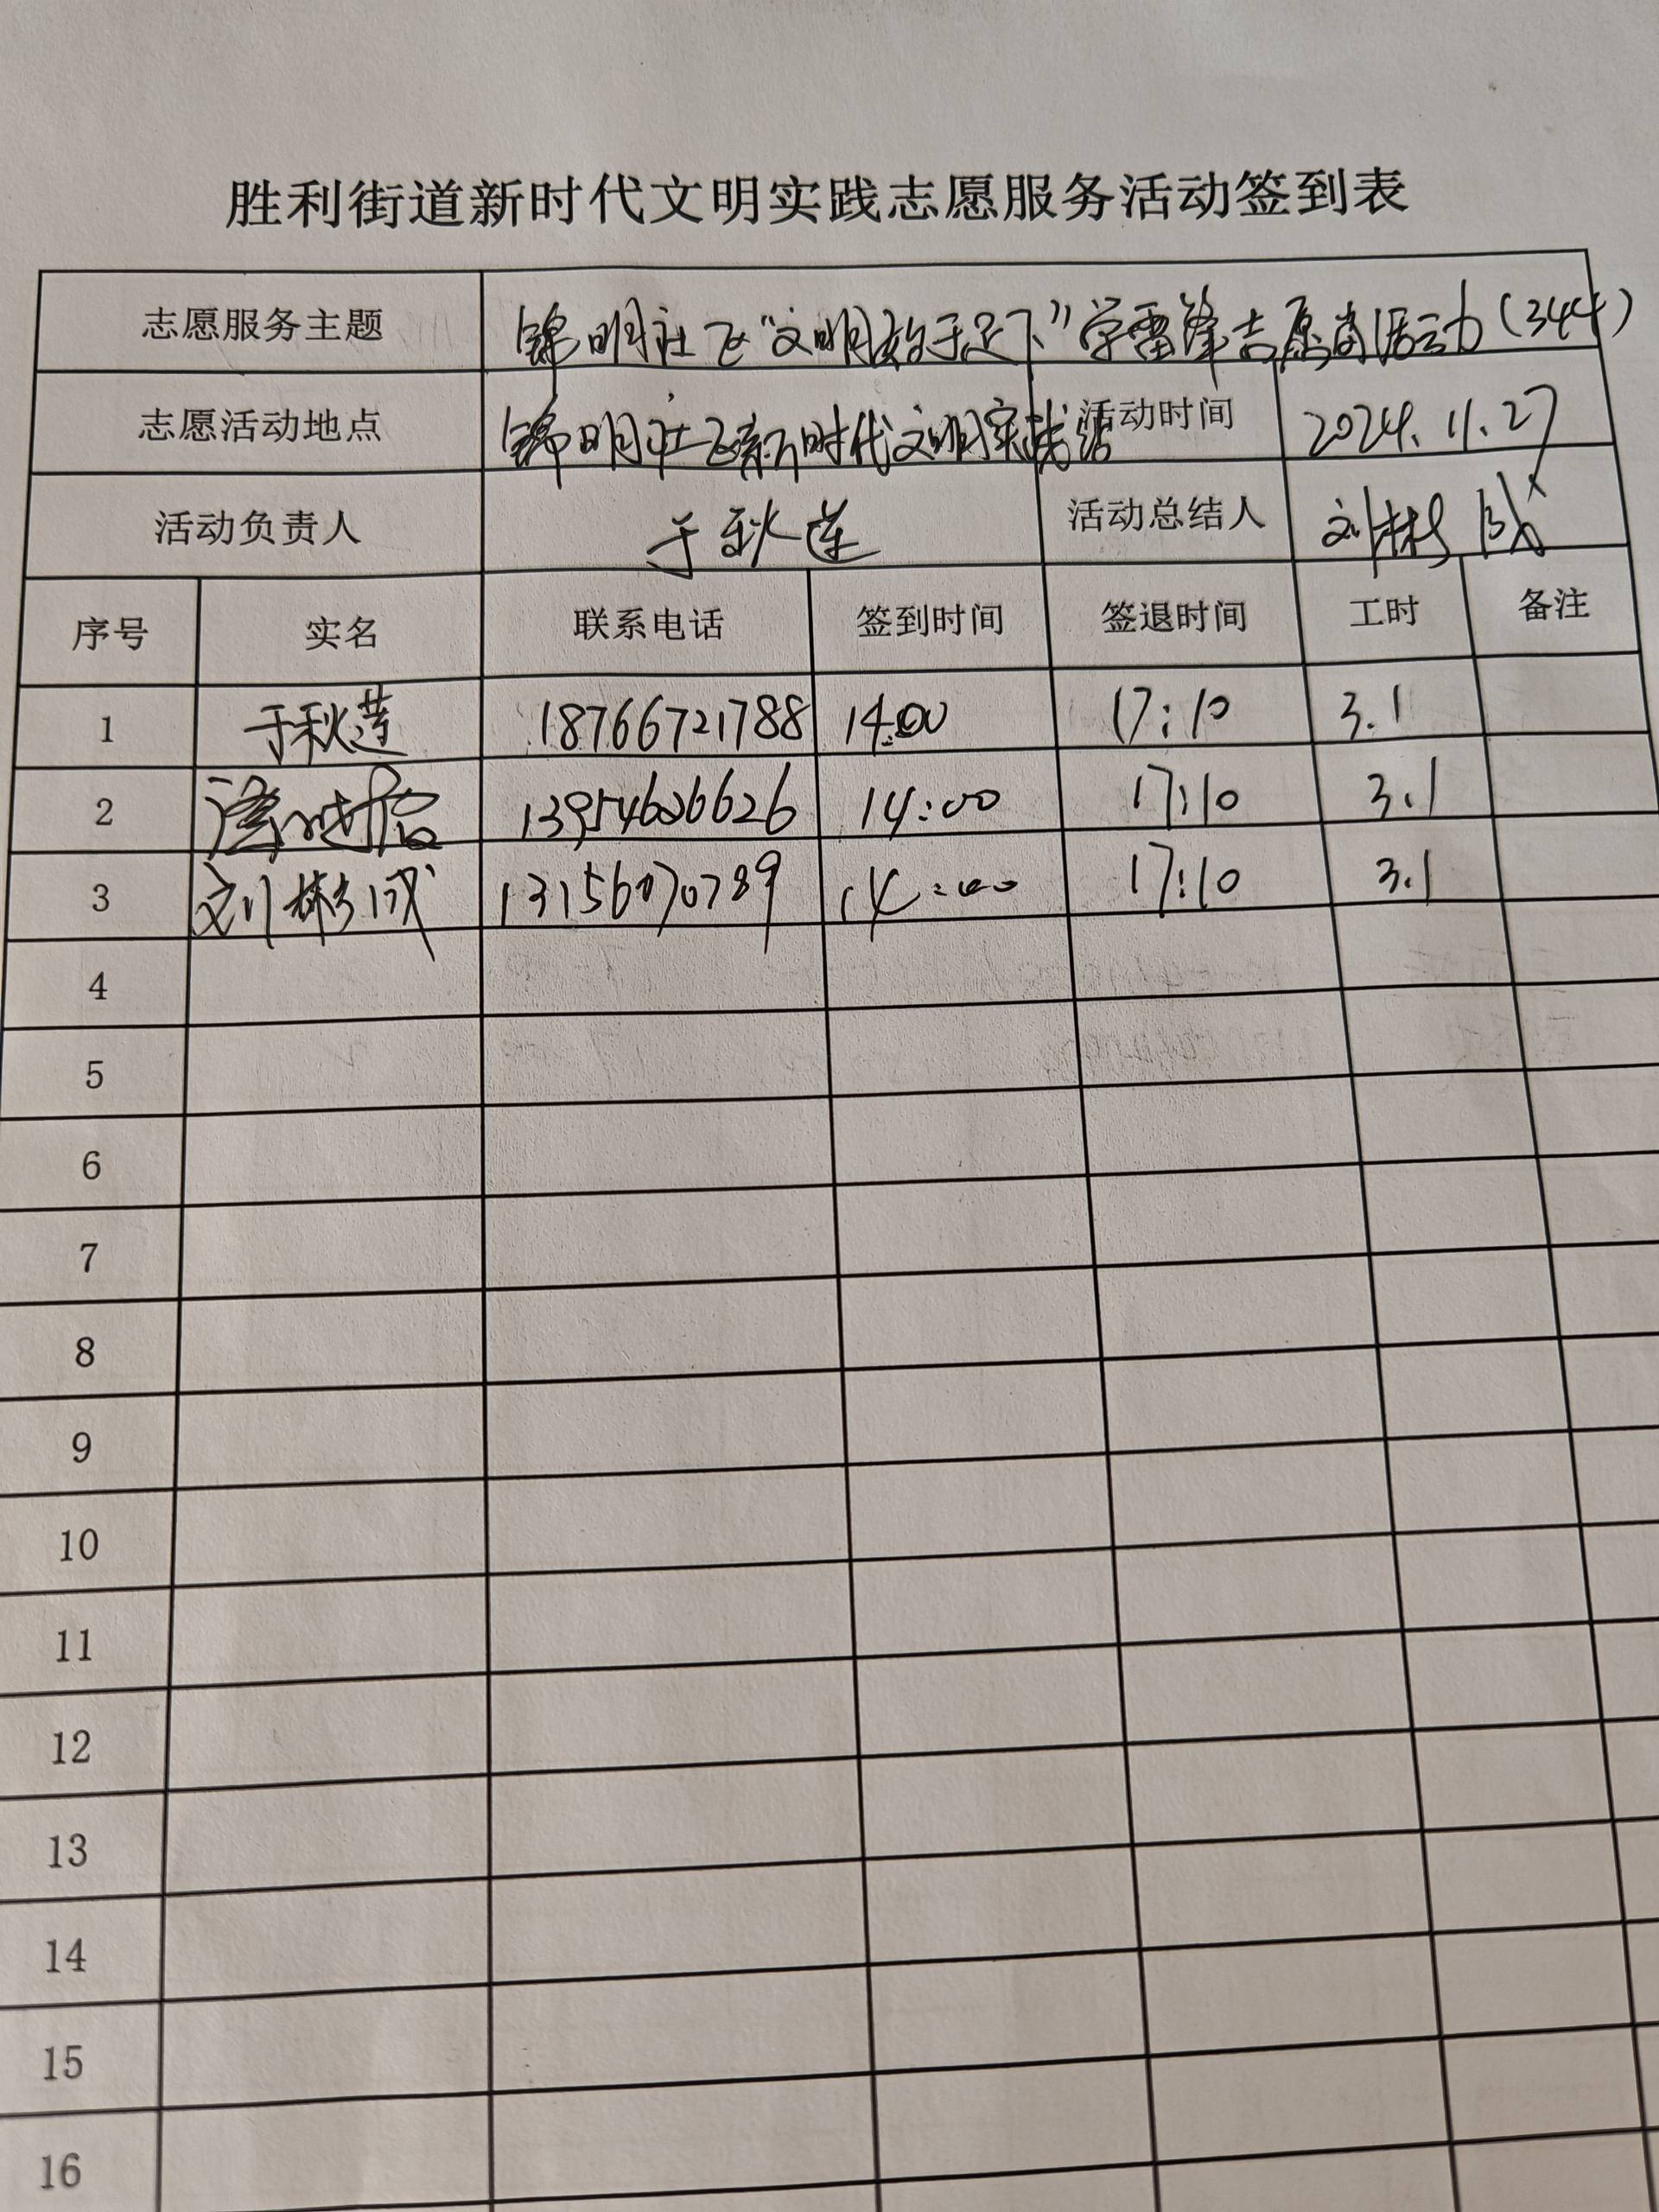 胜利街道新时代文明实践志愿服务活动签到表
志愿服务主题 锦明社区“文明始于足下”学雷锋志愿岗活动(344)
志愿活动地点 锦明社区新时代文明实践站 活动时间 2024.11.27
活动负责人 于秋莲 活动总结人 刘彬
序号 实名 联系电话 签到时间 签退时间 工时 备注
1 于秋莲 18766721788 14:00 17:10 3.1
2 14:00 17:10 3.1
3 刘彬 14:00 17:10 3.1
4
5
6
7
8
9
10
11
12
13
14
15
16